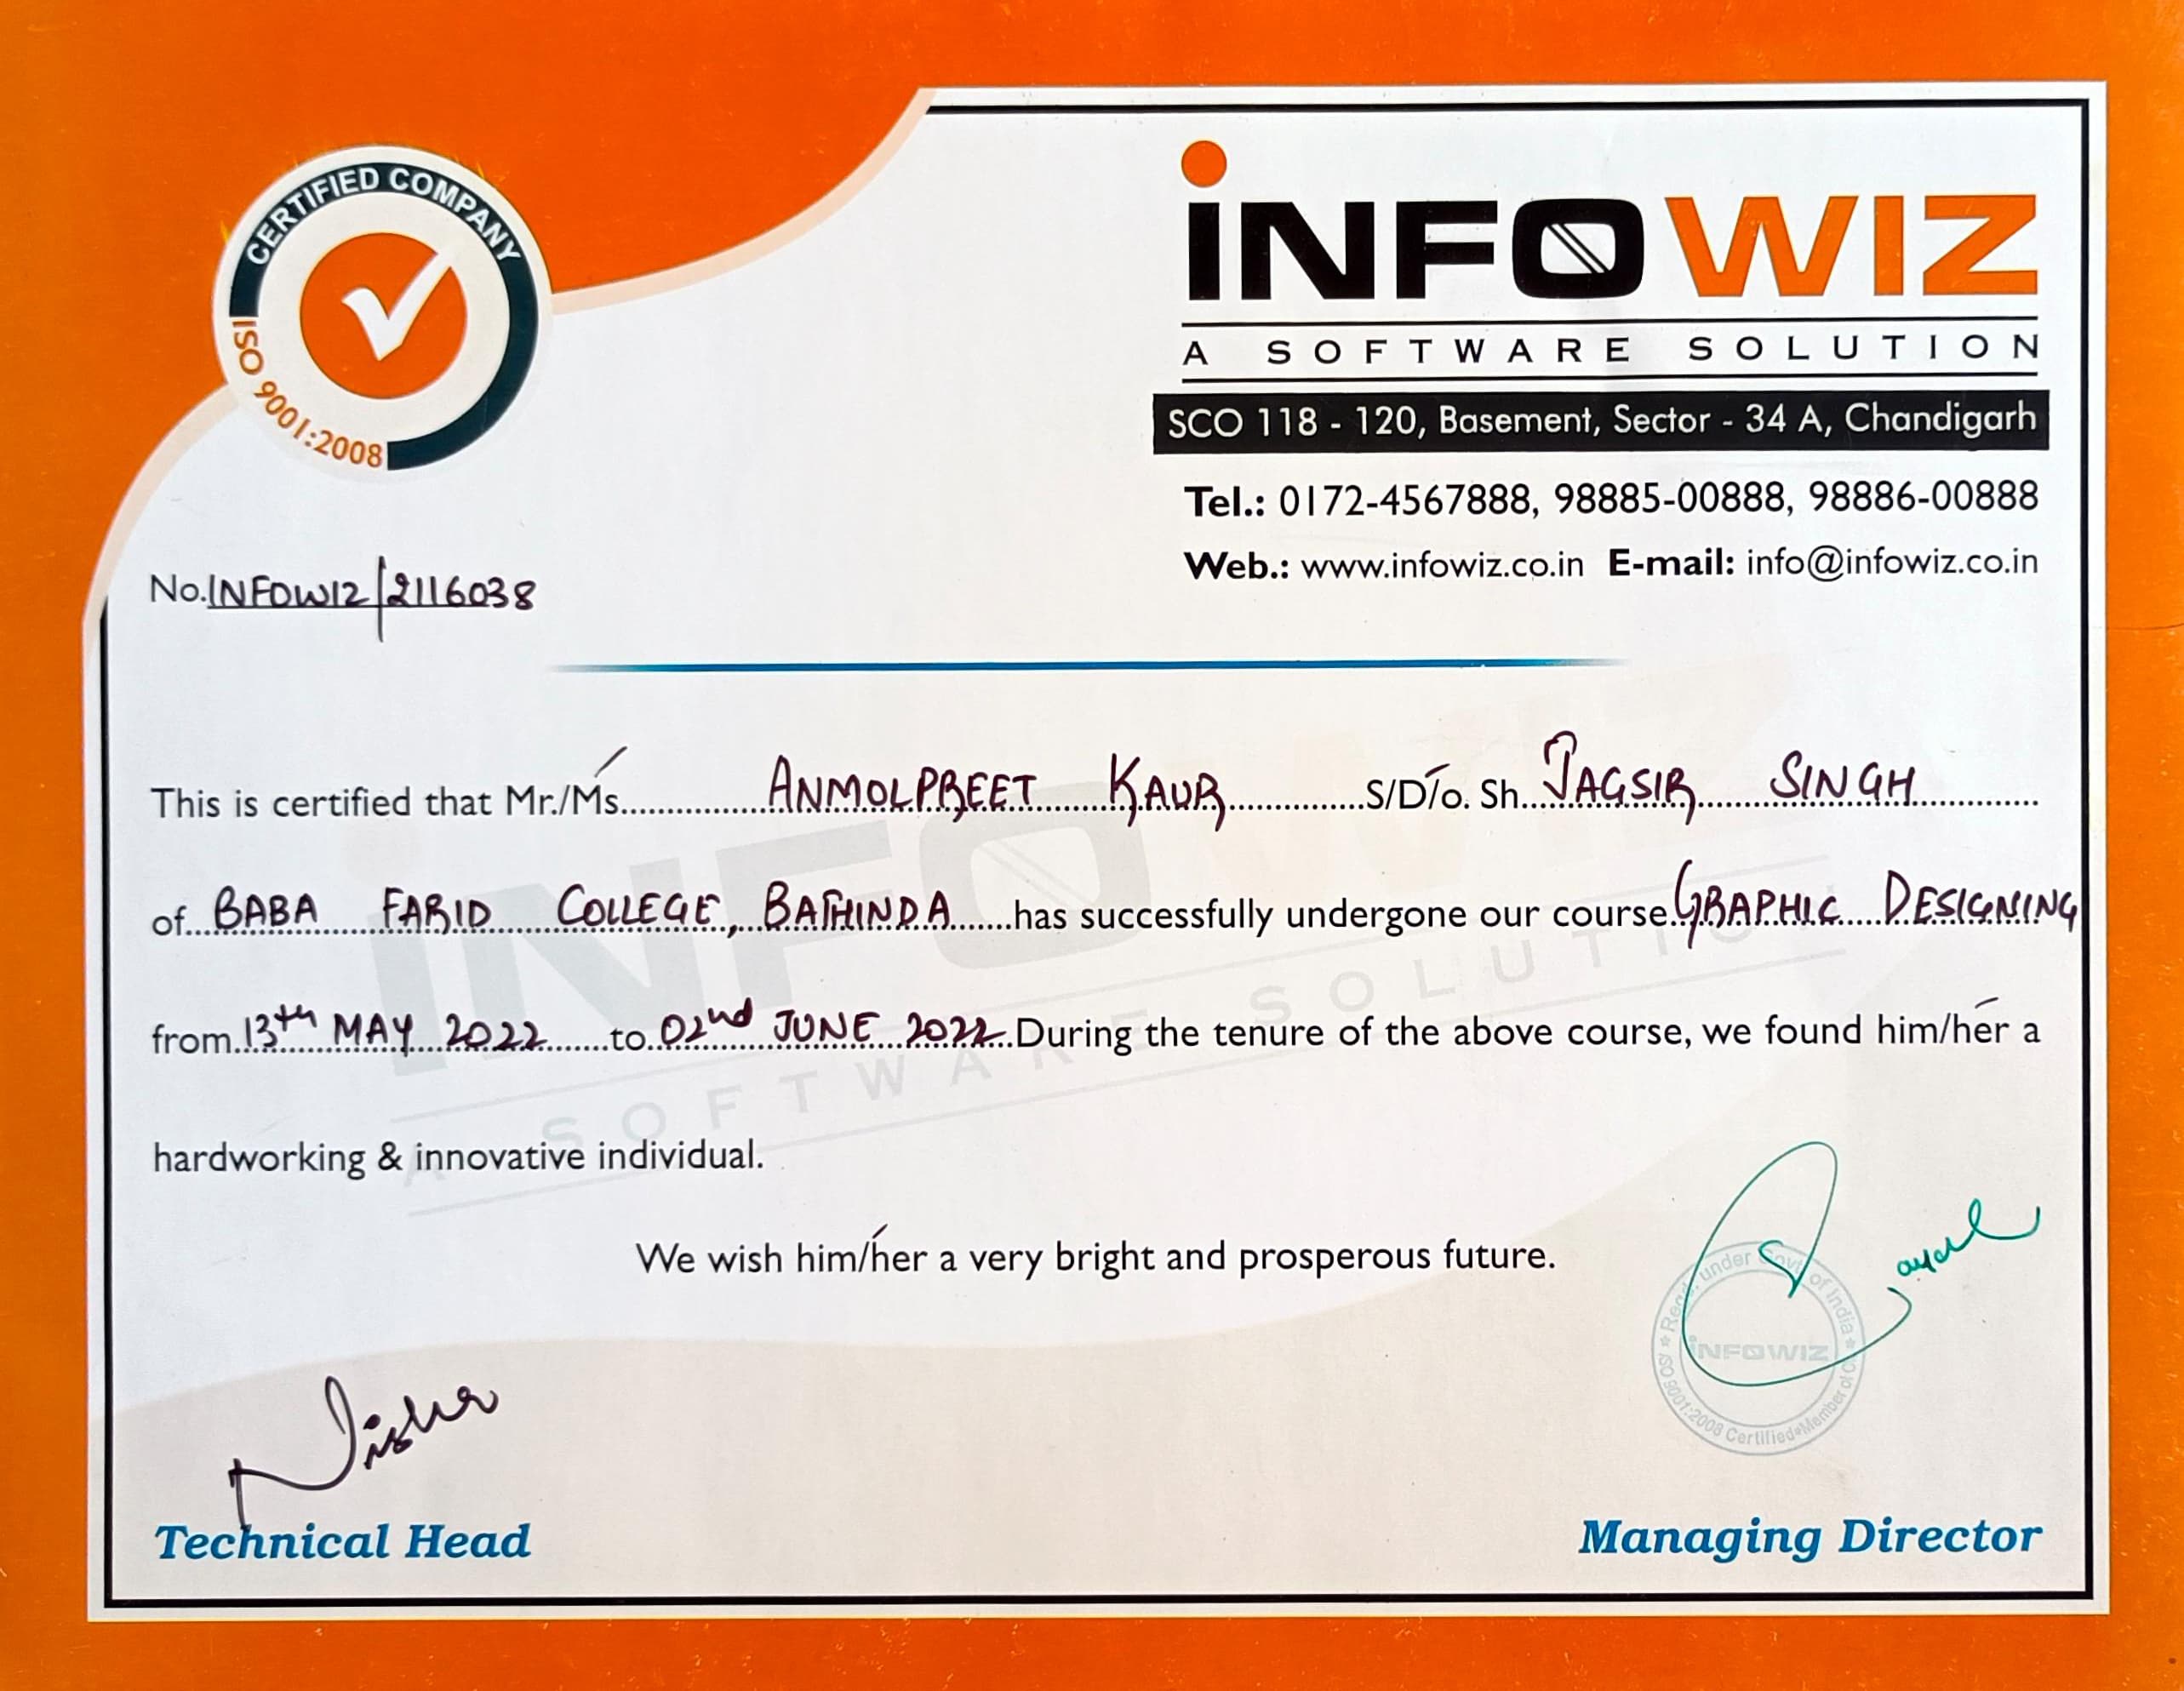 CERTIFIED COMPANY
ISO 9001:2008
iNFOWIZ
A SOFTWARE SOLUTION
SCO 118 - 120, Basement, Sector - 34 A, Chandigarh
Tel.: 0172-4567888, 98885-00888, 98886-00888
Web.: www.infowiz.co.in E-mail: info@infowiz.co.in
No.INFOWIZ/2116038
This is certified that Mr./Ms. ANMOLPREET KAUR S/D/o. Sh. JAGSIR SINGH
of BABA FARID COLLEGE, BATHINDA has successfully undergone our course GRAPHIC DESIGNING
from 13th MAY 2022 to 02nd JUNE 2022. During the tenure of the above course, we found him/her a
hardworking & innovative individual.
We wish him/her a very bright and prosperous future.
iNFOWIZ
A SOFTWARE SOLUTION
Regd. under Govt. of India
iNFOWIZ
ISO 9001:2008 Certified Member of
Nisha
Technical Head
Managing Director